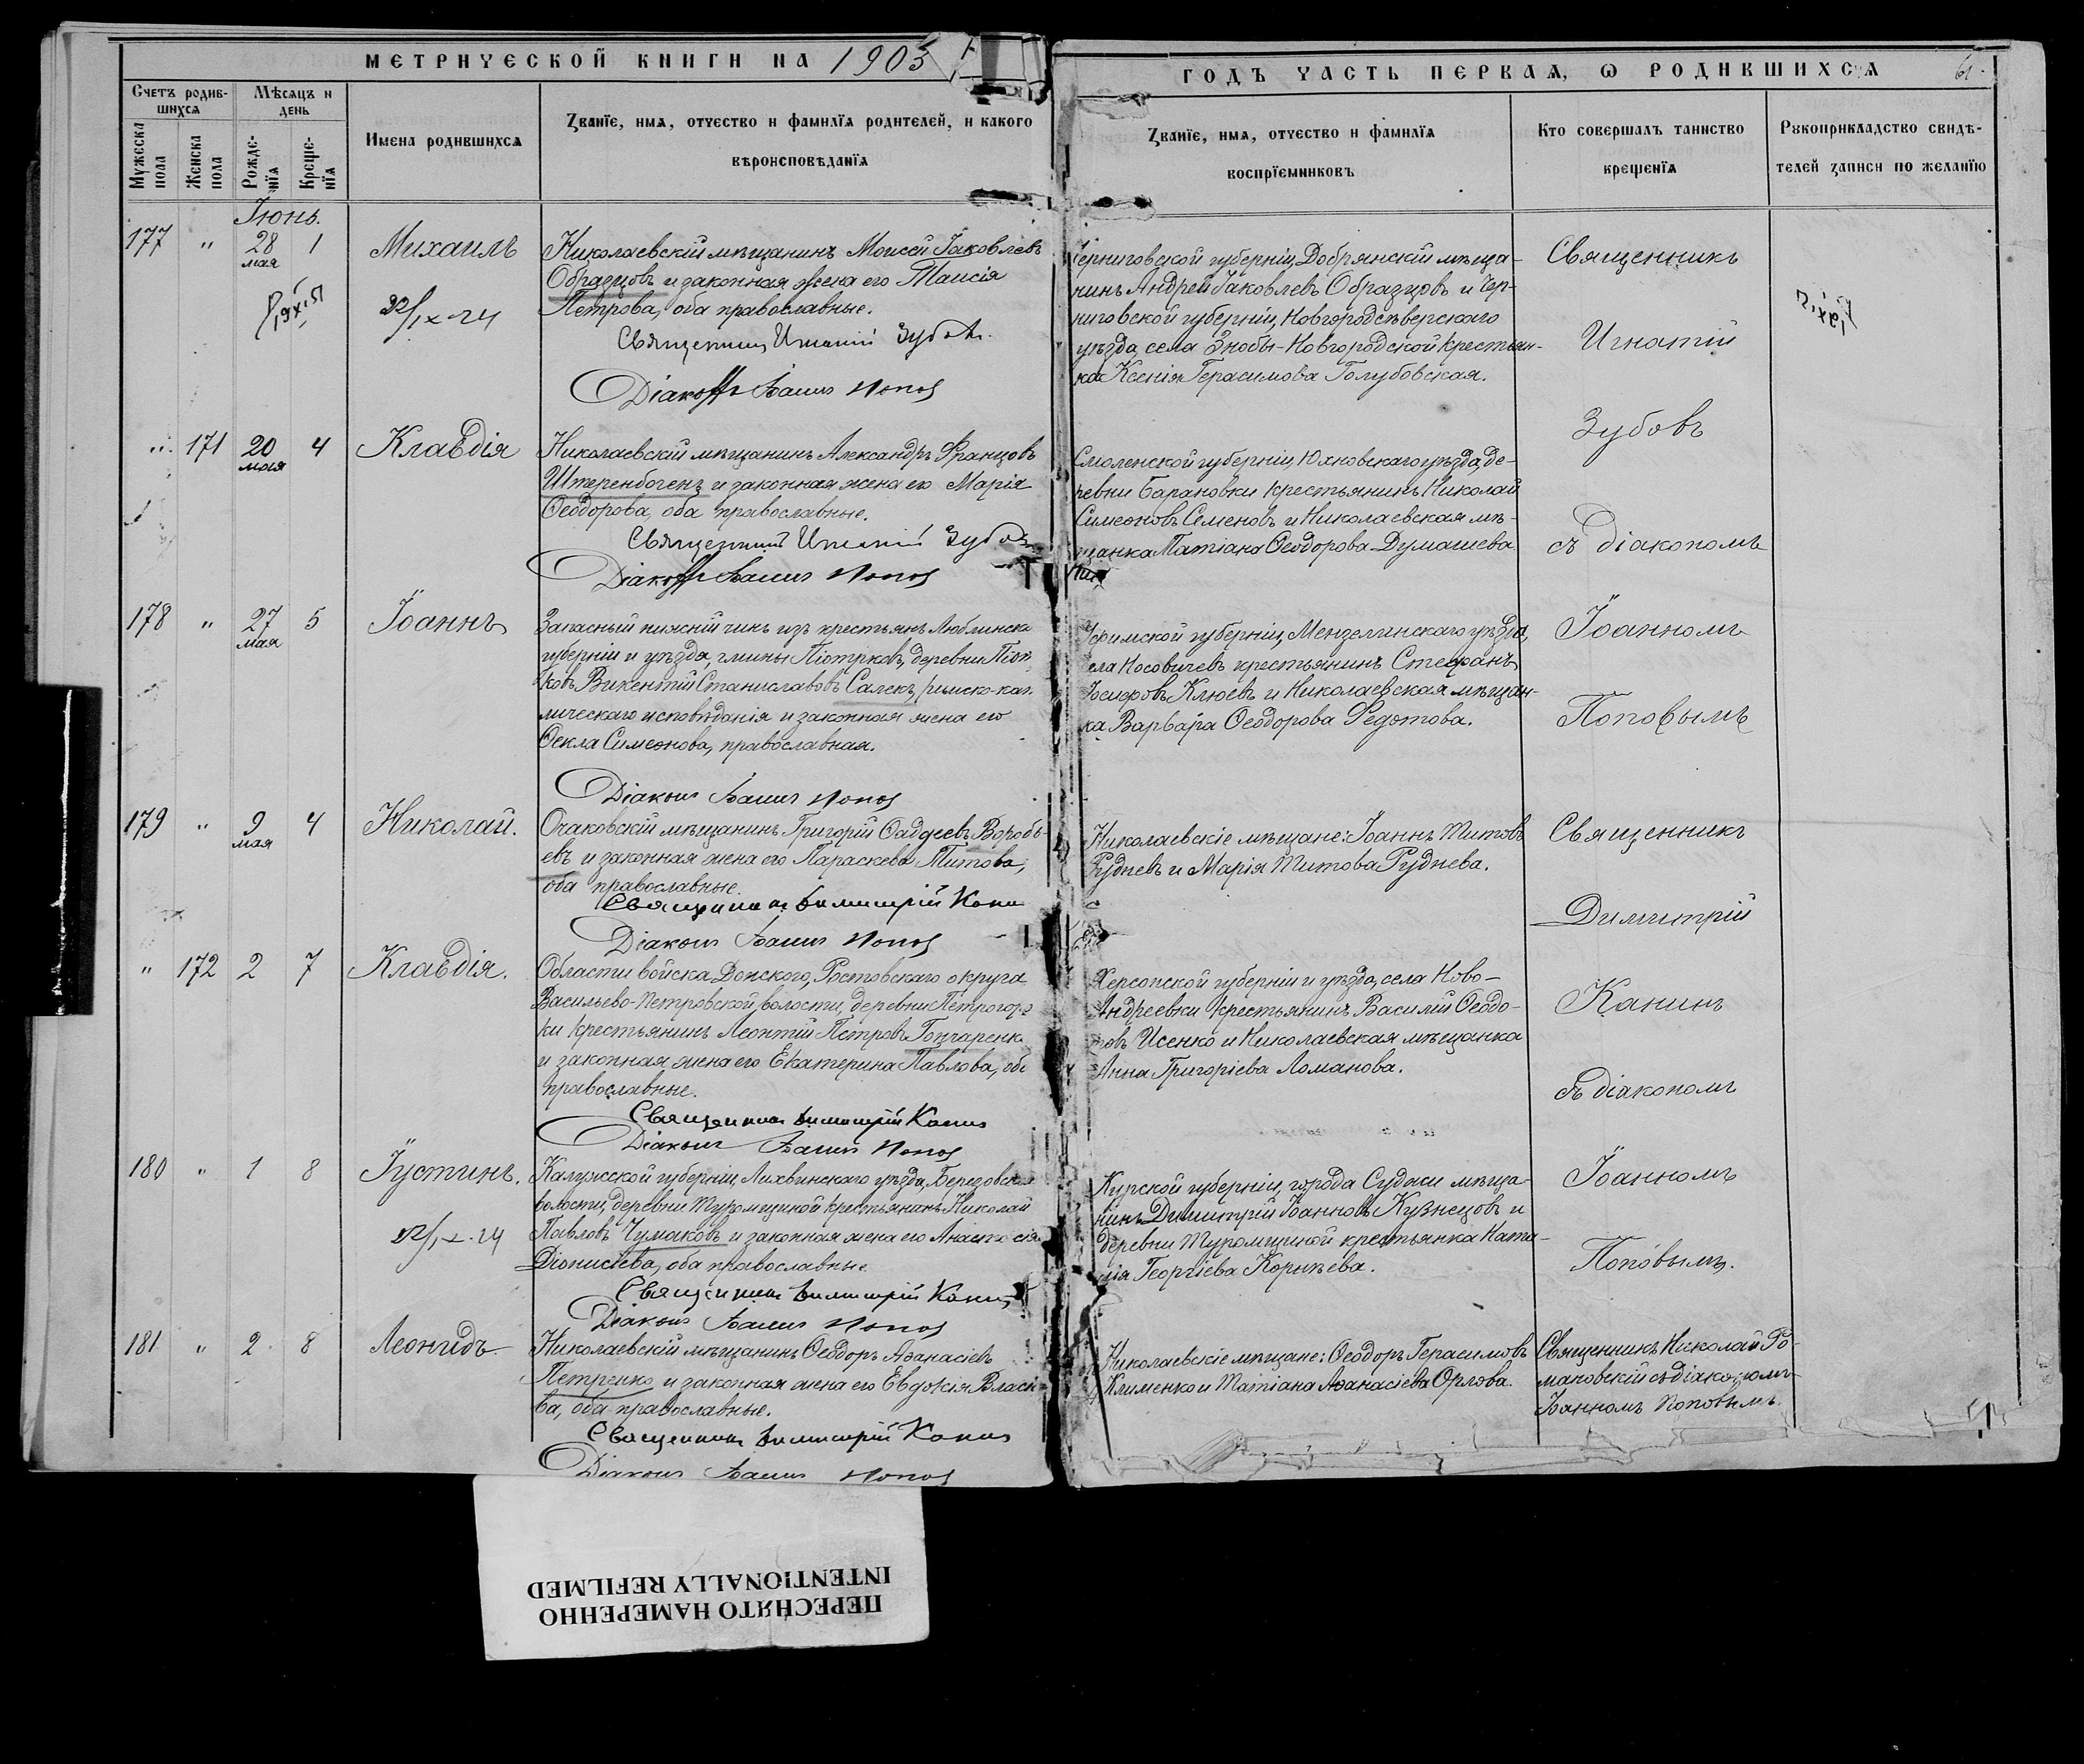 МЕТРИЧЕСКОЙ КНИГИ НА 1903
Счетъ родившихся
Мѣсяцъ и день
Имена родившихся
Званїе, имя, отчество и фамилїя родителей, и какого
вѣроисповѣданїя
Мужеска пола
Женска пола
Рожденїя
Крещенїя
Іюнь.
177 " 28 мая 1 Михаилъ
Николаевскій мѣщанинъ Моисей Іаковлевъ
Образцовъ и законная жена его Таисія
Петрова, оба православные.
Священникъ Игнатій Зубовъ.
Діаконъ Іоаннъ Попов
22/IX-24
" 171 20 мая 4 Клавдія
Николаевскій мѣщанинъ Александръ Францовъ
Штеренбогенъ и законная жена его Марія
Ѳеодорова, оба православные.
Священникъ Игнатій Зубов
Діаконъ Іоаннъ Попов
178 " 27 мая 5 Іоаннъ
Запасный нижній чинъ изъ крестьянъ Люблинско
губерніи и уѣзда, гмины Піотрковъ, деревни Піот
ковъ Викентій Станиславовъ Салекъ, римско-кат
лическаго исповѣданія и законная жена его
Ѳекла Симеонова, православная.
Діаконъ Іоаннъ Попов
179 " 9 мая 4 Николай.
Очаковскій мѣщанинъ Григорій Ѳаддеевъ Воробь-
евъ и законная жена его Параскева Титова,
оба православные.
Священникъ Димитрій Канин
Діаконъ Іоаннъ Попов
" 172 2 7 Клавдія.
Области войска Донского, Ростовскаго округа
Васильево-Петровской волости, деревни Петрогор
ки крестьянинъ Леонтій Петровъ Гончаренк
и законная жена его Екатерина Павлова, оба
православные.
Священникъ Димитрій Канинъ
Діаконъ Іоаннъ Попов
180 " 1 8 Іустинъ.
Калужской губерніи, Лихвинскаго уѣзда, Березовской
волости, деревни Туромщиной крестьянинъ Николай
Павловъ Чумаковъ и законная жена его Анастасія
Діонисіева, оба православные
22/IX-24
Священникъ Димитрій Канинъ
Діаконъ Іоаннъ Попов
181 " 2 8 Леонидъ.
Николаевскій мѣщанинъ Ѳеодоръ Аѳанасіевъ
Петренко и законная жена его Евдокія Власіе
ва, оба православные.
Священникъ Димитрій Канинъ
Діаконъ Іоаннъ Попов
ГОДЪ ЧАСТЬ ПЕРВАЯ, Ѡ РОДИВШИХСЯ
61.
Званїе, имя, отчество и фамилїя
воспрїемниковъ
Кто совершалъ таинство
крещенїя
Рукоприкладство свидѣ-
телей записи по желанїю
Черниговской губерніи, Добрянскій мѣща-
нинъ Андрей Іаковлевъ Образцовъ и Чер-
ниговской губерніи, Новгородсѣверскаго
уѣзда, села Знобы-Новгородской крестьян-
ка Ксенія Герасимова Голубовская.
Смоленской губерніи, Юхновскаго уѣзда, де-
ревни Барановки крестьянинъ Николай
Симеоновъ Семеновъ и Николаевская мѣ-
щанка Татіана Ѳеодорова Думашева
Уфимской губерніи, Мензелинскаго уѣзда,
села Носовичевъ крестьянинъ Стефанъ
Іосифовъ Клюевъ и Николаевская мѣщан-
ка Варвара Ѳеодорова Федотова.
Николаевскіе мѣщане: Іоаннъ Титовъ
Рудневъ и Марія Титова Руднева.
Херсонской губерніи и уѣзда, села Ново-
Андреевки крестьянинъ Василій Ѳеодо-
товъ Исенко и Николаевская мѣщанка
Анна Григоріева Ломанова.
Курской губерніи, города Суджи мѣща-
нинъ Димитрій Іоанновъ Кузнецовъ и
деревни Туромщиной крестьянка Ната-
лія Георгіева Корнѣева.
Николаевскіе мѣщане: Ѳеодоръ Герасимовъ
Клименко и Татіана Аѳанасіева Орлова.
Священникъ
Игнатій
Зубовъ
съ діакономъ
Іоанномъ
Поповымъ
Священникъ
Димитрій
Канинъ
съ діакономъ
Іоанномъ
Поповымъ.
Священникъ Николай Ро-
мановскій съ діакономъ
Іоанномъ Поповымъ.
ПЕРЕСНЯТО НАМЕРЕННО
INTENTIONALLY REFILMED